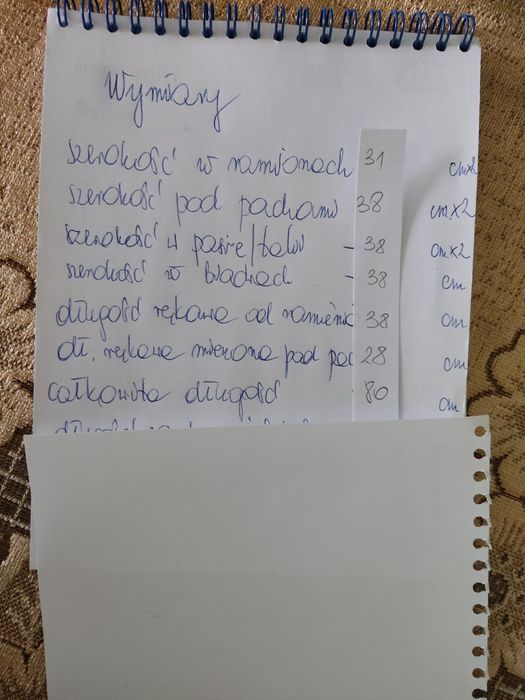 Wymiary
szerokość w ramionach 31 cmx2
szerokość pod pachami 38 cmx2
szerokość w pasie/talii - 38 cmx2
szerokość w biodrach - 38 cm
długość rękawa od ramienia 38 cm
dł. rękawa mierzona pod pac 28 cm
całkowita długość 80 cm